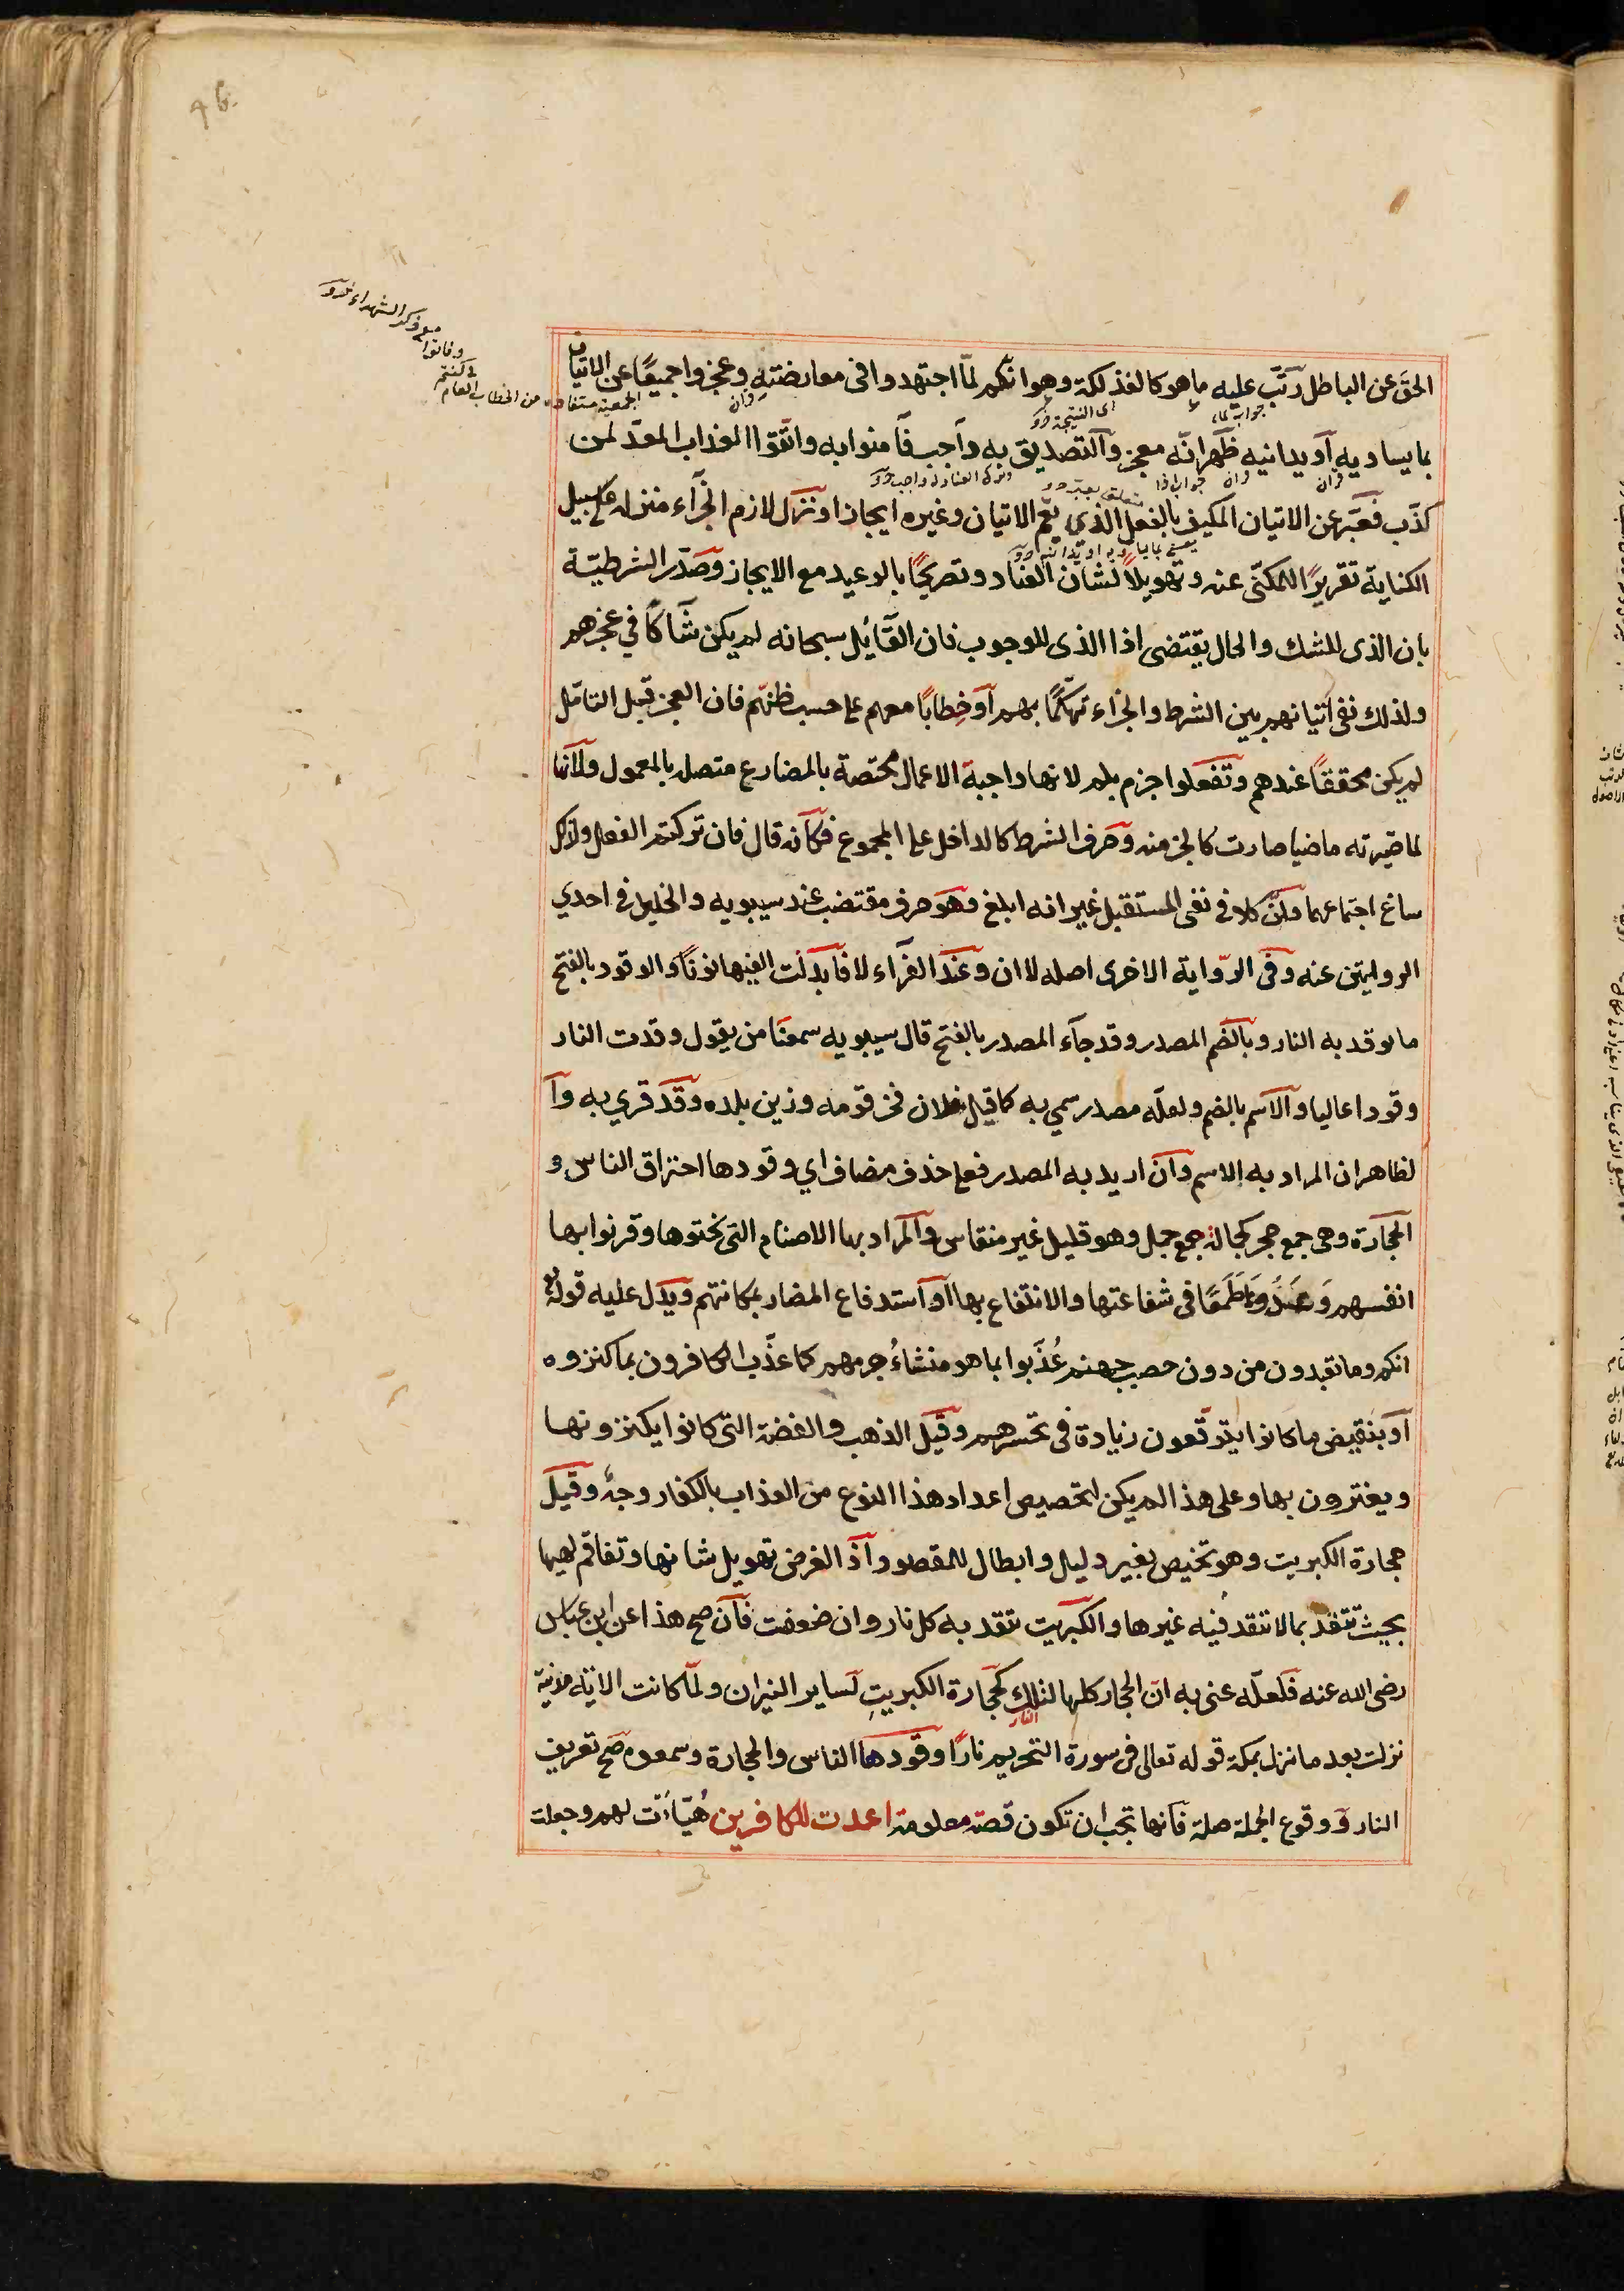 الحق عن الباطل رتّب عليه ما هو كالفذلكة وهو انكم لمّا اجتهدوا فى معارضته وعجزوا جميعًا عن الاتيان
بما يساويه أو يدانيه ظهر انّه معجز والتصديق به واجب فآمنوا به واتّقوا العذاب المعدّ لمن
كذّب فعبّر عن الاتيان المكيف بالفعل الذي يعمّ الاتيان وغيره ايجازا ونزّل لازم الجزآء منزله على سبيل
الكناية تقريرًا للمكنّى عنه وتهويلاً لشان العناد وتصريحًا بالوعيد مع الايجاز وصدّر الشرطيّة
بان الذى للشك والحال يقتضى اذا الذى للوجوب فان القآئل سبحانه لم يكن شآكًا في عجزهم
ولذلك نفى اتيانهم بين الشرط والجزاء تهكّمًا بهم أو خطابًا معهم على حسب ظنهّم فان العجز قبل التامّل
لم يكن محققاً عندهم وتفعلوا جزم بلم لانها واجبة الاعمال مختصة بالمضارع متصلة بالمعمول ولانها
لما صيّرته ماضيا صارت كالجزء منه وحرف الشرط كالداخل على المجموع فكأنه قال فان تركتم الفعل ولذلك
ساغ اجتماعهما ولن كلا فى نفى المستقبل غير انه ابلغ وهو حرف مقتضب عند سيبويه والخليل فى احدي
الروايتين عنه وفى الرّواية الاخرى اصله لا ان وعند الفرآء لا فابدلت الفها نونًا والوقود بالفتح
ما توقد به النار وبالضم المصدر وقد جآء المصدر بالفتح قال سيبويه سمعنا من يقول وقدت النار
وقودا عاليا والاسم بالضم ولعلّه مصدر سمي به كما قيل فلان فخر قومه وزين بلده وقد قري به وا
لظاهر ان المراد به الاسم وان اريد به المصدر فعلى حذف مضاف اي وقودها احتراق الناس و
الحجارة وهى جمع حجر كجمالة جمع جمل وهو قليل غير منقاس والمراد بها الاصنام التى نحتوها وقرنوا بها
انفسهم وعبدوها طمعًا فى شفاعتها والانتفاع بها أو استدفاع المضار بمكانتهم ويدل عليه قوله تع
انكم وما تعبدون من دون حصب جهنم عُذّبوا بما هو منشاءُ جرمهم كما عذّب الكافرون بما كنزوه
أو بنقيض ما كانوا يتوقّعون زيادة فى تحسّرهم وقيل الذهب والفضة التى كانوا يكنزونها
ويغترون بها وعلى هذا لم يكن لتخصيص اعداد هذا النوع من العذاب بالكفار وجهٌ وقيل
حجارة الكبريت وهو تخيص بغير دليل وابطال للمقصود اذ الغرض تهويل شانها وتفاقم لهبها
بحيث تتقد بما لا تتقد فيه غيرها والكبريت تتقد به كل نار وان ضعفت فآن صح هذا عن ابن عباس
رضى الله عنه فلعلّه عنى به انّ الحجار كلها لتلك النار كحجارة الكبريت لساير النيران ولمّا كانت الاية مدنية
نزلت بعد ما نزل بمكة قوله تعالى فى سورة التحريم نارًا وقودها الناس والحجارة وسمعوه صح تعريف
النار ووقوع الجملة صلة فانها تجب ان تكون قصة معلومة اعدت للكافرين هُيّأت لهم وجعلت
جواب لما
اى النتيجة
جواب اذا
متعلق بعبّر
يعنى بما يساويه او يدانيه
الجمعية مستفادة من الخطاب العام
في كنتم
وفاتوا
مع ذكر الشهداء